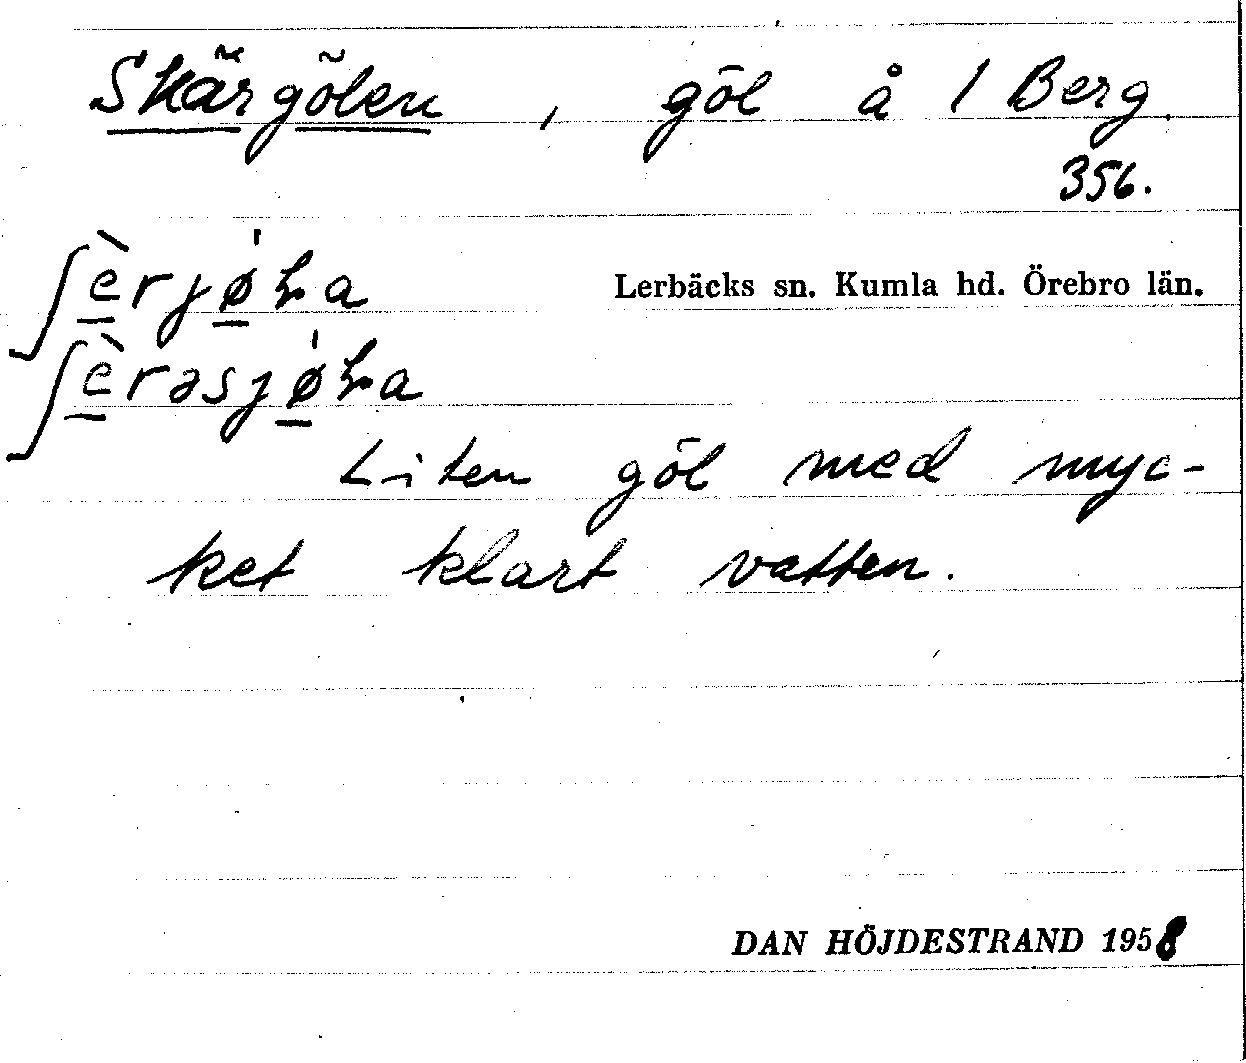 Skärgölen, göl å 1 Berg.
356.
ʃèrjøɫa
Lerbäcks sn. Kumla hd. Örebro län.
ʃèrəsjøɫa
Liten göl med myc-
ket klart vatten.
DAN HÖJDESTRAND 1958